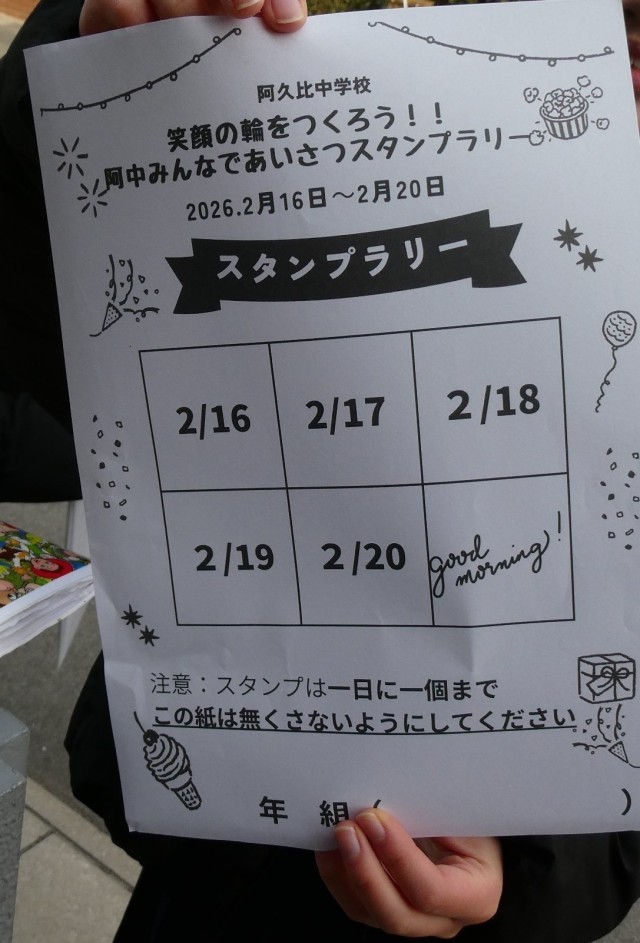 阿久比中学校
笑顔の輪をつくろう！！
阿中みんなであいさつスタンプラリー
2026.2月16日～2月20日
スタンプラリー
2/16 2/17 2/18
2/19 2/20 good morning!
注意：スタンプは一日に一個まで
この紙は無くさないようにしてください
年 組( )